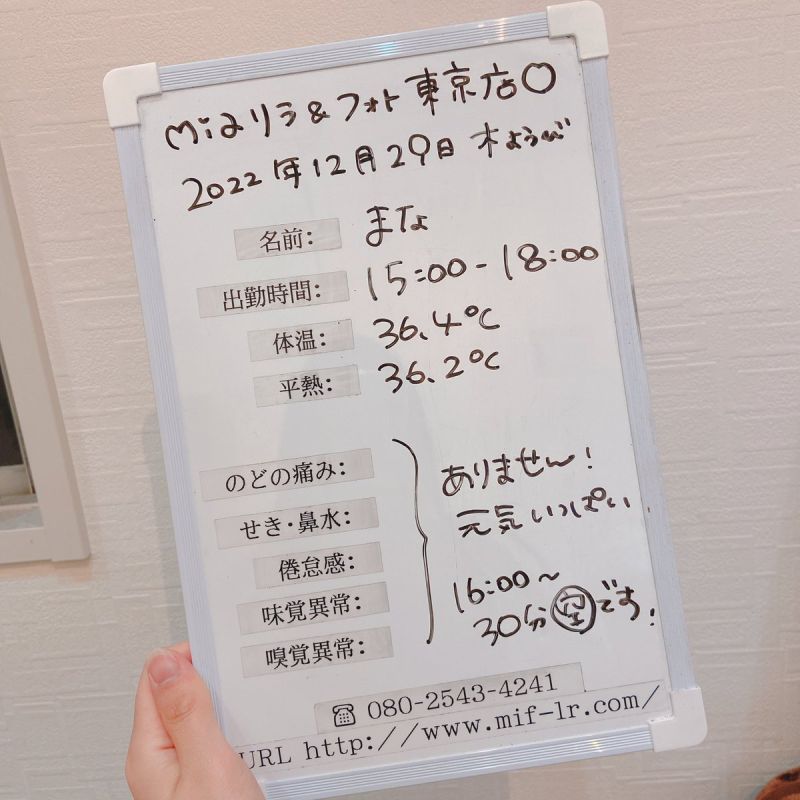 miaリラ&フォト東京店♡
2022年12月29日 木ようび
名前: まな
出勤時間: 15:00-18:00
体温: 36.4℃
平熱: 36.2℃
のどの痛み:
せき・鼻水:
倦怠感:
味覚異常:
嗅覚異常:
ありません!
元気いっぱい
16:00~
30分空です!
☎ 080-2543-4241
URL http://www.mif-lr.com/